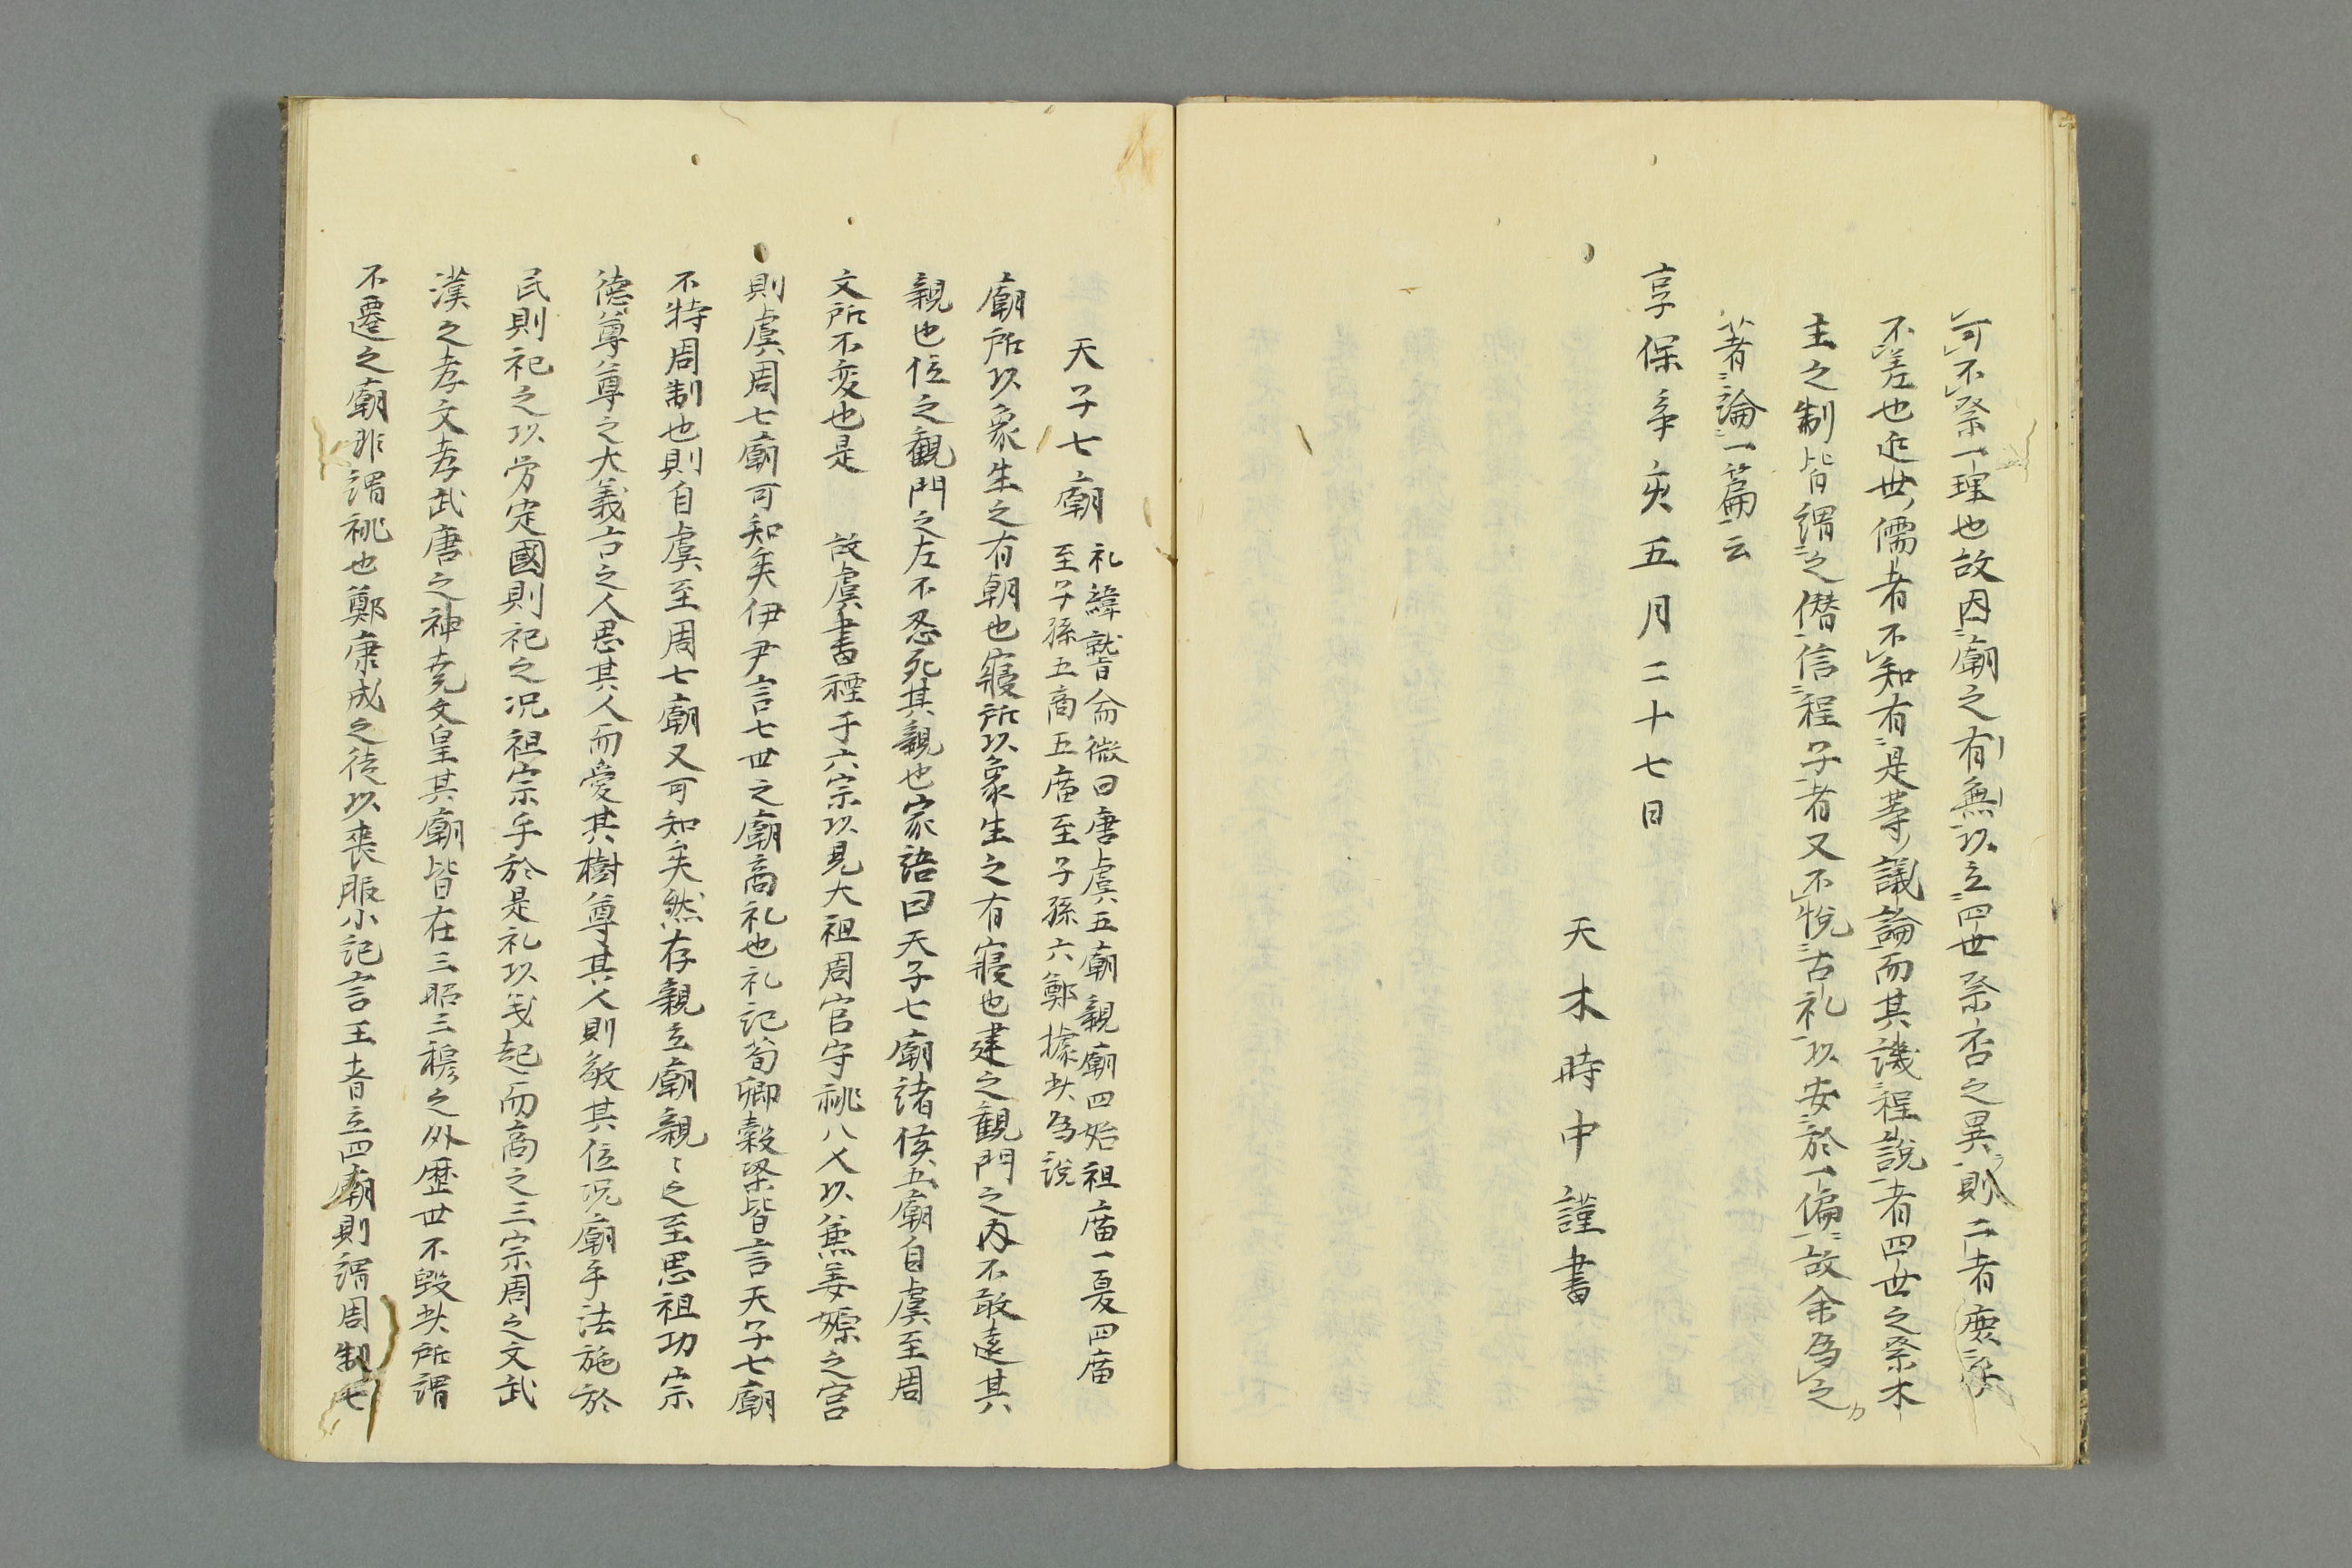 可不祭一理也故因廟之有無以立四世祭否之異則二者庶
不差也近世儒者不知有是等議論而其譏程説者四世之祭木
主之制皆謂之僭信程子者又不悦古礼以安於一偏故余為之
著論一篇云
享保辛亥五月二十七日
天木時中謹書
天子七廟
礼緯稽命徴曰唐虞五廟親廟四始祖庿一夏四庿
至子孫五商五庿至子孫六鄭據此為説
廟所以象生之有朝也寢所以象生之有寢也建之觀門之内不敢遠其
親也位之觀門之左不忍死其親也家語曰天子七廟諸侯五廟自虞至周
文所不変也是 故虞書禋于六宗以見大祖周官守祧八人以兼姜嫄之宮
則虞周七廟可知矣伊尹言七世之廟商礼也礼記荀卿穀梁皆言天子七廟
不特周制也則自虞至周七廟又可知矣然存親立廟親〻之至思祖功宗
德尊尊之大義古之人思其人而愛其樹尊其人則敬其位况廟乎法施於
民則祀之以労定國則祀之况祖宗乎於是礼以義起而商之三宗周之文武
漢之孝文孝武唐之神尭文皇其廟皆在三昭三穆之外歴世不毀此所謂
不遷之廟非謂祧也鄭康成之徒以喪服小記言王者立四廟則謂周制七